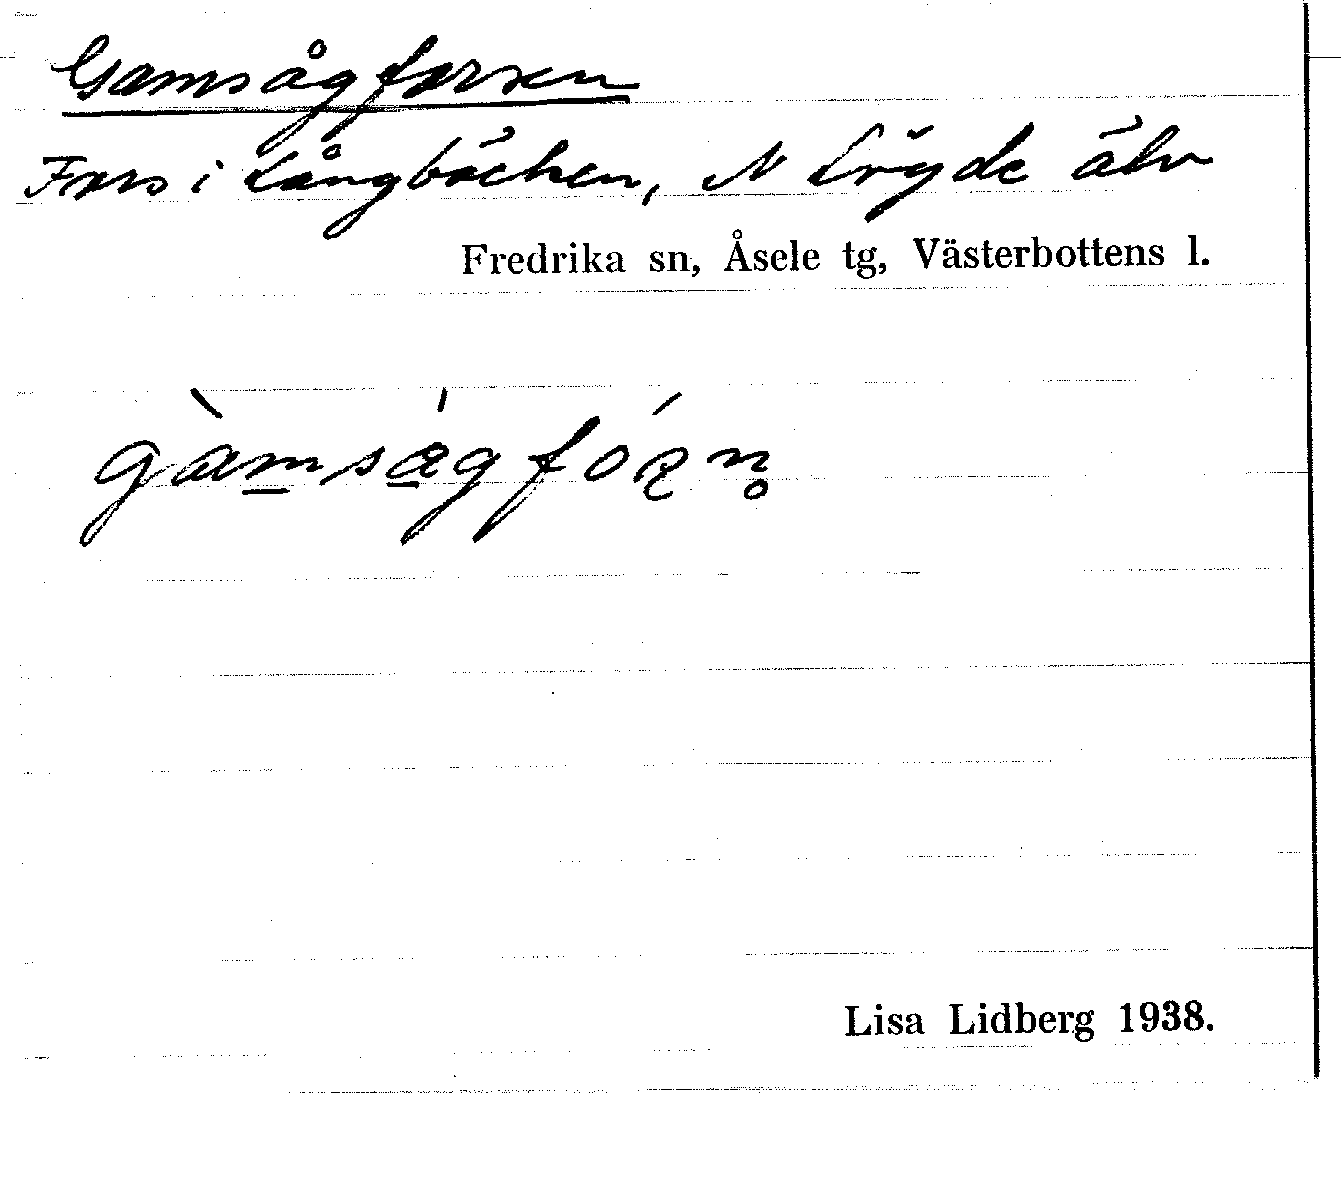 Gamsågforsen
Fors i Långbäcken, N Lögde älv
Fredrika sn, Åsele tg, Västerbottens l.
Lisa Lidberg 1938.